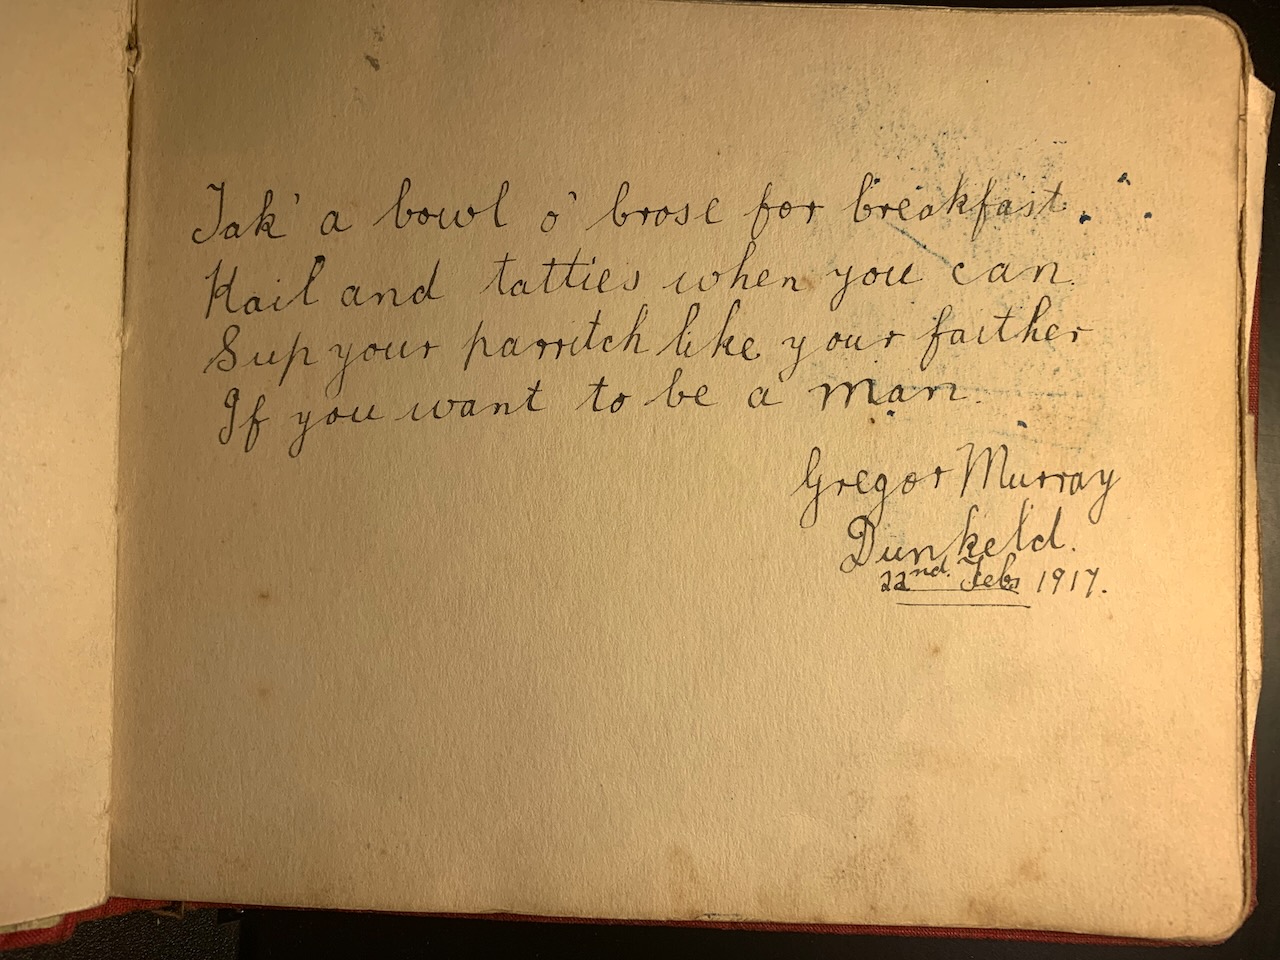 Tak' a bowl o' brose for breakfast.
Kail and tatties when you can.
Sup your parritch like your faither
If you want to be a man.
Gregor Murray
Dunkeld.
22nd. Feb. 1917.